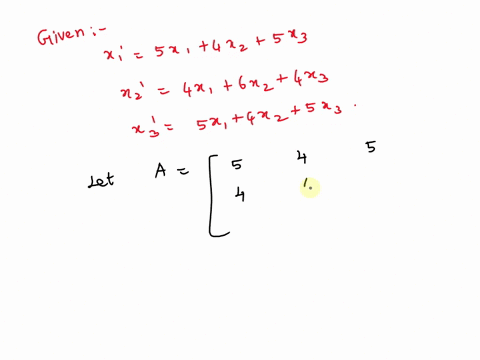 Given :-
x₁' = 5x₁ + 4x₂ + 5x₃
x₂' = 4x₁ + 6x₂ + 4x₃
x₃' = 5x₁ + 4x₂ + 5x₃ .
Let A = [ 5 4 5
4